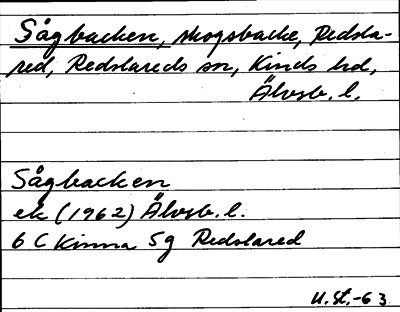 Sågbacken, skogsbacke, Redsla-
red, Redslareds sn, Kinds hd,
Älvsb. l.
Sågbacken
ek (1962) Älvsb. l.
6 C Kinna 5g Redslared
U. St. -63